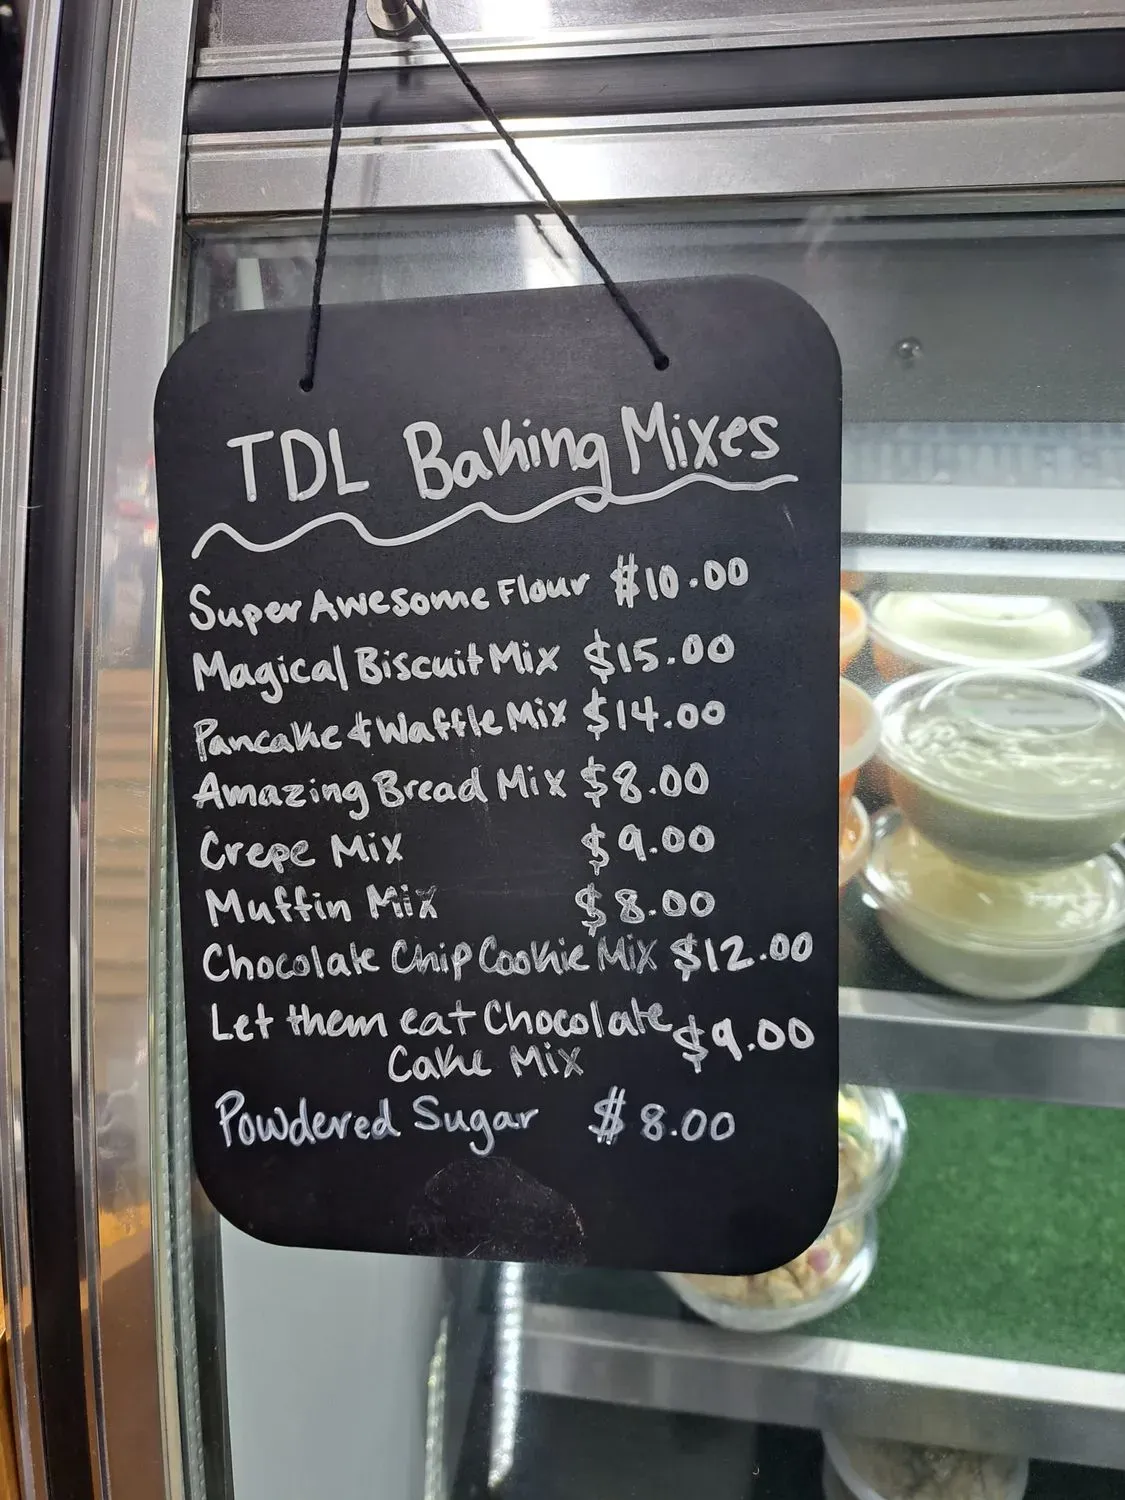 TDL Baking Mixes
Super Awesome Flour $10.00
Magical Biscuit Mix $15.00
Pancake & Waffle Mix $14.00
Amazing Bread Mix $8.00
Crepe Mix $9.00
Muffin Mix $8.00
Chocolate Chip Cookie Mix $12.00
Let them eat Chocolate $9.00
Cake Mix
Powdered Sugar $8.00